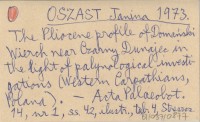 OSZAST Janina 1973.
The Pliocene profile of Domański
Wierch near Czarny Dunajec in
the light of palynological investi-
gations (Western Carpathians,
Poland). - Acta Palaeobot.
14, nr 1, ss. 42,